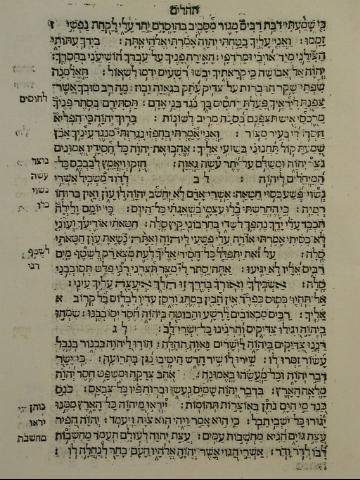 תהלים
כי שמעתי דבת רבים מגור מסביב בהוסדם יחד עלי לקחת נפשי
זממו : ואני עליך בטחתי יהוה אמרתי אלהי אתה : בידך עתותי
הצילני מיד אויבי ומרדפי : האירה פניך על עבדך הושיעני בחסדך :
יהוה אל אבושה כי קראתיך יבשו רשעים ידמו לשאול : תאלמנה
שפתי שקר הדברות על צדיק עתק בגאוה ובוז : מה רב טובך אשר
צפנת ליראיך פעלת לחסים בך נגד בני אדם : תסתירם בסתר פניך
מרכסי איש תצפנם בסכה מריב לשונות : ברוך יהוה כי הפליא
חסדו לי בעיר מצור : ואני אמרתי בחפזי נגרזתי מנגד עיניך אכן
שמעת קול תחנוני בשועי אליך : אהבו את יהוה כל חסידיו אמונים
נצר יהוה ומשלם על יתר עשה גאוה : חזקו ויאמץ לבבכם כל
המיחלים ליהוה : לב לדוד משכיל אשרי
נשוי פשע כסוי חטאה : אשרי אדם לא יחשב יהוה לו עון ואין ברוחו
רמיה : כי החרשתי בלו עצמי בשאגתי כל היום : כי יומם ולילה
תכבד עלי ידך נהפך לשדי בחרבוני קיץ סלה : חטאתי אודיעך ועוני
לא כסיתי אמרתי אודה עלי פשעי ליהוה ואתה נשאת עון חטאתי
סלה : על זאת יתפלל כל חסיד אליך לעת מצא רק לשטף מים
רבים אליו לא יגיעו : אתה סתר לי מצר תצרני רני פלט תסובבני
סלה : אשכילך ואורך בדרך זו תלך איעצה עליך עיני :
אל תהיו כסוס כפרד אין הבין במתג ורסן עדיו לבלום בל קרוב
אליך : רבים מכאובים לרשע והבוטח ביהוה חסד יסובבנו : שמחו
ביהוה וגילו צדיקים והרנינו כל ישרי לב : לג
רננו צדיקים ביהוה לישרים נאוה תהלה : הודו ליהוה בכנור בנבל
עשור זמרו לו : שירו לו שיר חדש היטיבו נגן בתרועה : כי ישר
דבר יהוה וכל מעשהו באמונה : אהב צדקה ומשפט חסד יהוה
מלאה הארץ : בדבר יהוה שמים נעשו וברוח פיו כל צבאם : כנס
כנד מי הים נתן באצרות תהומות : ייראו מיהוה כל הארץ ממנו
יגורו כל ישבי תבל : כי הוא אמר ויהי הוא צוה ויעמד : יהוה הפיר
עצת גוים הניא מחשבות עמים : עצת יהוה לעולם תעמד מחשבות
לבו לדר ודר : אשרי הגוי אשר יהוה אלהיו העם בחר לנחלה לו :
לחוסים
נוצר
עשה
נשוי
לשטף
נותן
יראו
מחשבת